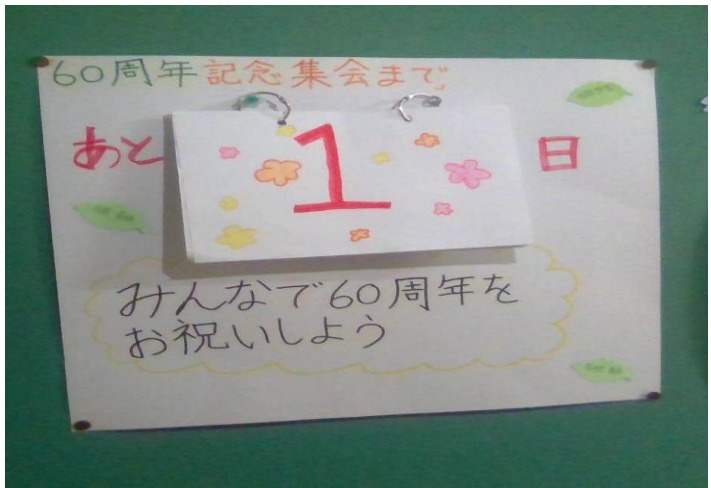 60周年記念集会まで
あと1日
みんなで60周年を
お祝いしよう